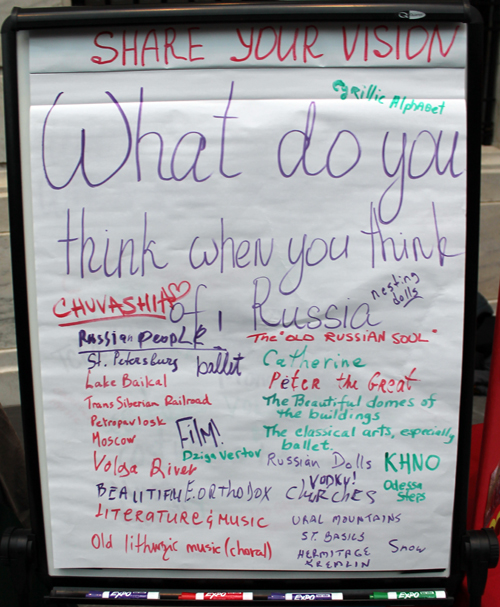 SHARE YOUR VISION
Cyrillic Alphabet
What do you
think when you think
of Russia
nesting
dolls
CHUVASHIA
Russian PEOPLE
The "OLD RUSSIAN SOUL"
St. Petersburg
ballet
Catherine
Lake Baikal
Peter the Great
Trans Siberian Railroad
The Beautiful domes of
the buildings
Petropavlosk
Moscow
FILM!
Dziga Vertov
The classical arts, especially
ballet.
Volga River
Russian Dolls
KHNO
VODKY!
Odessa
Steps
BEAUTIFUL E. ORTHODOX CHURCHES
LITERATURE & MUSIC
URAL MOUNTAINS
ST. BASILS
Old lithurgic music (choral)
HERMITAGE
KREMLIN
Snow
EXPO
EXPO
EXPO
EXPO